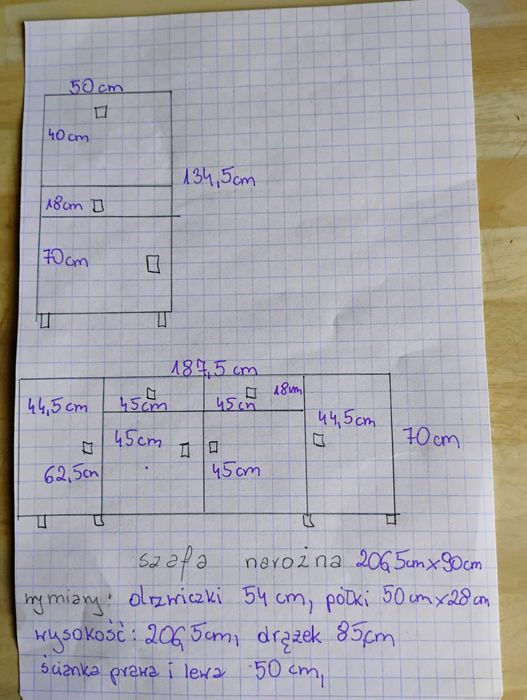 50 cm
40 cm
134,5 cm
18 cm
70 cm
187,5 cm
44,5 cm 45 cm 45 cm 18 cm
45 cm 44,5 cm 70 cm
62,5 cm 45 cm
szafa narożna 206,5 cm x 90 cm
wymiary: drzwiczki 54 cm, półki 50 cm x 28 cm
wysokość: 206,5 cm, drążek 85 cm
ścianka prawa i lewa 50 cm,